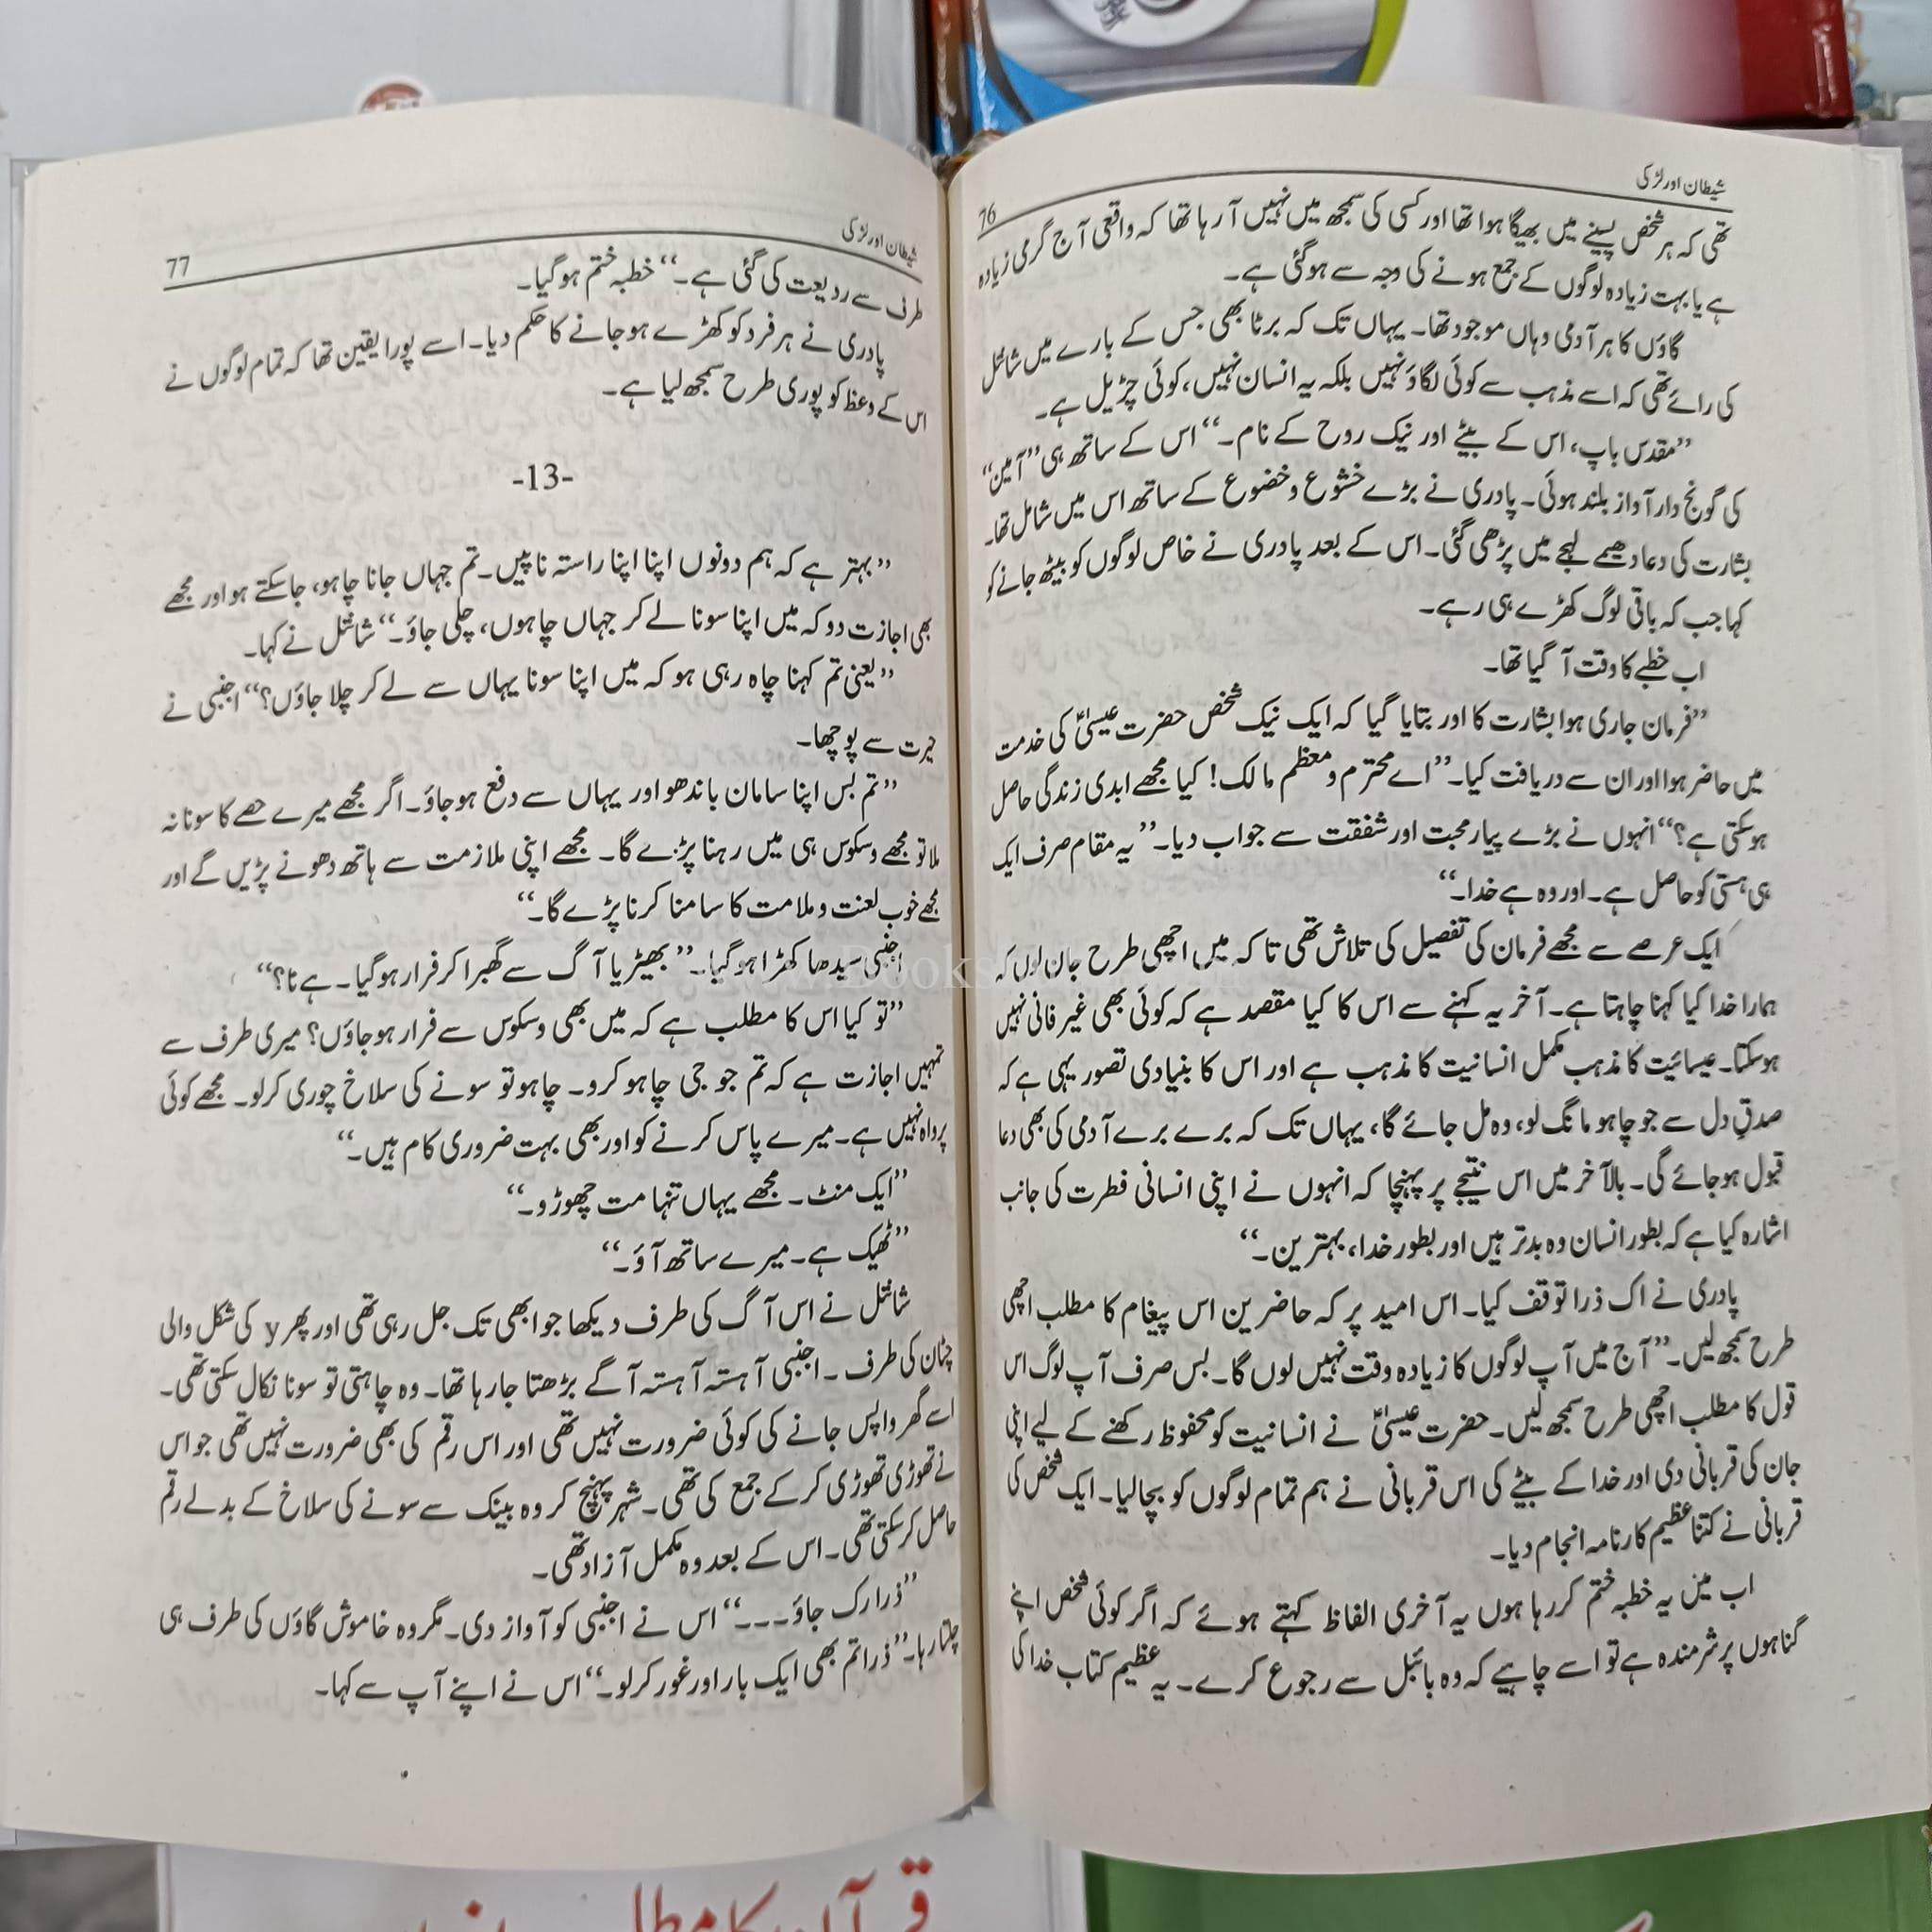 شیطان اور لڑکی
76
تھی کہ ہر شخص پسینے میں بھیگا ہوا تھا اور کسی کی سمجھ میں نہیں آ رہا تھا کہ واقعی آج گرمی زیادہ
ہے یا بہت زیادہ لوگوں کے جمع ہونے کی وجہ سے ہوگئی ہے۔
گاؤں کا ہر آدمی وہاں موجود تھا۔ یہاں تک کہ برٹا بھی جس کے بارے میں شانٹل
کی رائے تھی کہ اسے مذہب سے کوئی لگاؤ نہیں بلکہ یہ انسان نہیں، کوئی چڑیل ہے۔
”مقدس باپ، اس کے بیٹے اور نیک روح کے نام۔“ اس کے ساتھ ہی ”آمین“
کی گونج دار آواز بلند ہوئی۔ پادری نے بڑے خشوع و خضوع کے ساتھ اس میں شامل تھا۔
بشارت کی دعا دھیمے لہجے میں پڑھی گئی۔ اس کے بعد پادری نے خاص لوگوں کو بیٹھ جانے کو
کہا جب کہ باقی لوگ کھڑے ہی رہے۔
اب خطبے کا وقت آ گیا تھا۔
”فرمان جاری ہوا بشارت کا اور بتایا گیا کہ ایک نیک شخص حضرت عیسیٰؑ کی خدمت
میں حاضر ہوا اور ان سے دریافت کیا۔ ”اے محترم و معظم مالک! کیا مجھے ابدی زندگی حاصل
ہوسکتی ہے؟“ انہوں نے بڑے پیار محبت اور شفقت سے جواب دیا۔ ”یہ مقام صرف ایک
ہی ہستی کو حاصل ہے۔ اور وہ ہے خدا۔“
ایک عرصے سے مجھے فرمان کی تفصیل کی تلاش تھی تا کہ میں اچھی طرح جان لوں کہ
ہمارا خدا کیا کہنا چاہتا ہے۔ آخر یہ کہنے سے اس کا کیا مقصد ہے کہ کوئی بھی غیر فانی نہیں
ہوسکتا۔ عیسائیت کا مذہب مکمل انسانیت کا مذہب ہے اور اس کا بنیادی تصور یہی ہے کہ
صدقِ دل سے جو چاہو مانگ لو، وہ مل جائے گا، یہاں تک کہ برے برے آدمی کی بھی دعا
قبول ہوجائے گی۔ بالآخر میں اس نتیجے پر پہنچا کہ انہوں نے اپنی انسانی فطرت کی جانب
اشارہ کیا ہے کہ بطور انسان وہ بدتر ہیں اور بطور خدا، بہترین۔“
پادری نے اک ذرا توقف کیا۔ اس امید پر کہ حاضرین اس پیغام کا مطلب اچھی
طرح سمجھ لیں۔ ”آج میں آپ لوگوں کا زیادہ وقت نہیں لوں گا۔ بس صرف آپ لوگ اس
قول کا مطلب اچھی طرح سمجھ لیں۔ حضرت عیسیٰؑ نے انسانیت کو محفوظ رکھنے کے لیے اپنی
جان کی قربانی دی اور خدا کے بیٹے کی اس قربانی نے ہم تمام لوگوں کو بچا لیا۔ ایک شخص کی
قربانی نے کتنا عظیم کارنامہ انجام دیا۔
اب میں یہ خطبہ ختم کر رہا ہوں یہ آخری الفاظ کہتے ہوئے کہ اگر کوئی شخص اپنے
گناہوں پر شرمندہ ہے تو اسے چاہیے کہ وہ بائبل سے رجوع کرے۔ یہ عظیم کتاب خدا کی
شیطان اور لڑکی
77
طرف سے ردیعت کی گئی ہے۔“ خطبہ ختم ہوگیا۔
پادری نے ہر فرد کو کھڑے ہوجانے کا حکم دیا۔ اسے پورا یقین تھا کہ تمام لوگوں نے
اس کے وعظ کو پوری طرح سمجھ لیا ہے۔
-13-
”بہتر ہے کہ ہم دونوں اپنا اپنا راستہ ناپیں۔ تم جہاں جانا چاہو، جاسکتے ہو اور مجھے
بھی اجازت دو کہ میں اپنا سونا لے کر جہاں چاہوں، چلی جاؤ۔“ شانٹل نے کہا۔
”یعنی تم کہنا چاہ رہی ہو کہ میں اپنا سونا یہاں سے لے کر چلا جاؤں؟“ اجنبی نے
حیرت سے پوچھا۔
”تم بس اپنا سامان باندھو اور یہاں سے دفع ہوجاؤ۔ اگر مجھے میرے حصے کا سونا نہ
ملا تو مجھے وسکوس ہی میں رہنا پڑے گا۔ مجھے اپنی ملازمت سے ہاتھ دھونے پڑیں گے اور
مجھے خوب لعنت و ملامت کا سامنا کرنا پڑے گا۔“
اجنبی سیدھا کھڑا ہوگیا۔ ”بھیڑیا آگ سے گھبرا کر فرار ہوگیا۔ ہے نا؟“
”تو کیا اس کا مطلب ہے کہ میں بھی وسکوس سے فرار ہوجاؤں؟ میری طرف سے
تمہیں اجازت ہے کہ تم جو جی چاہو کرو۔ چاہو تو سونے کی سلاخ چوری کرلو۔ مجھے کوئی
پرواہ نہیں ہے۔ میرے پاس کرنے کو اور بھی بہت ضروری کام ہیں۔“
”ایک منٹ۔ مجھے یہاں تنہا مت چھوڑو۔“
”ٹھیک ہے۔ میرے ساتھ آؤ۔“
شانٹل نے اس آگ کی طرف دیکھا جو ابھی تک جل رہی تھی اور پھر y کی شکل والی
چٹان کی طرف۔ اجنبی آہستہ آہستہ آگے بڑھتا جارہا تھا۔ وہ چاہتی تو سونا نکال سکتی تھی۔
اسے گھر واپس جانے کی کوئی ضرورت نہیں تھی اور اس رقم کی بھی ضرورت نہیں تھی جو اس
نے تھوڑی تھوڑی کرکے جمع کی تھی۔ شہر پہنچ کر وہ بینک سے سونے کی سلاخ کے بدلے رقم
حاصل کرسکتی تھی۔ اس کے بعد وہ مکمل آزاد تھی۔
”ذرا رک جاؤ۔۔۔“ اس نے اجنبی کو آواز دی۔ مگر وہ خاموش گاؤں کی طرف ہی
چلتا رہا۔ ”ذرا تم بھی ایک بار اور غور کرلو۔“ اس نے اپنے آپ سے کہا۔
Books